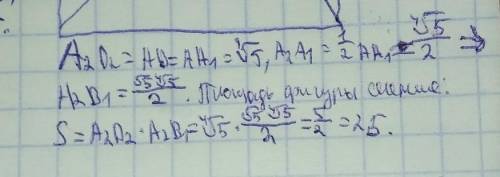 A₂D₂ = AD = AA₁ = ∜5, A₂A₁ = 1/2 AA₁ = ∜5/2 ⇒
A₂B₁ = √5 ∜5/2. Площадь фигуры сечение:
S = A₂D₂ · A₂B₁ = ∜5 · √5 ∜5/2 = 5/2 = 25.